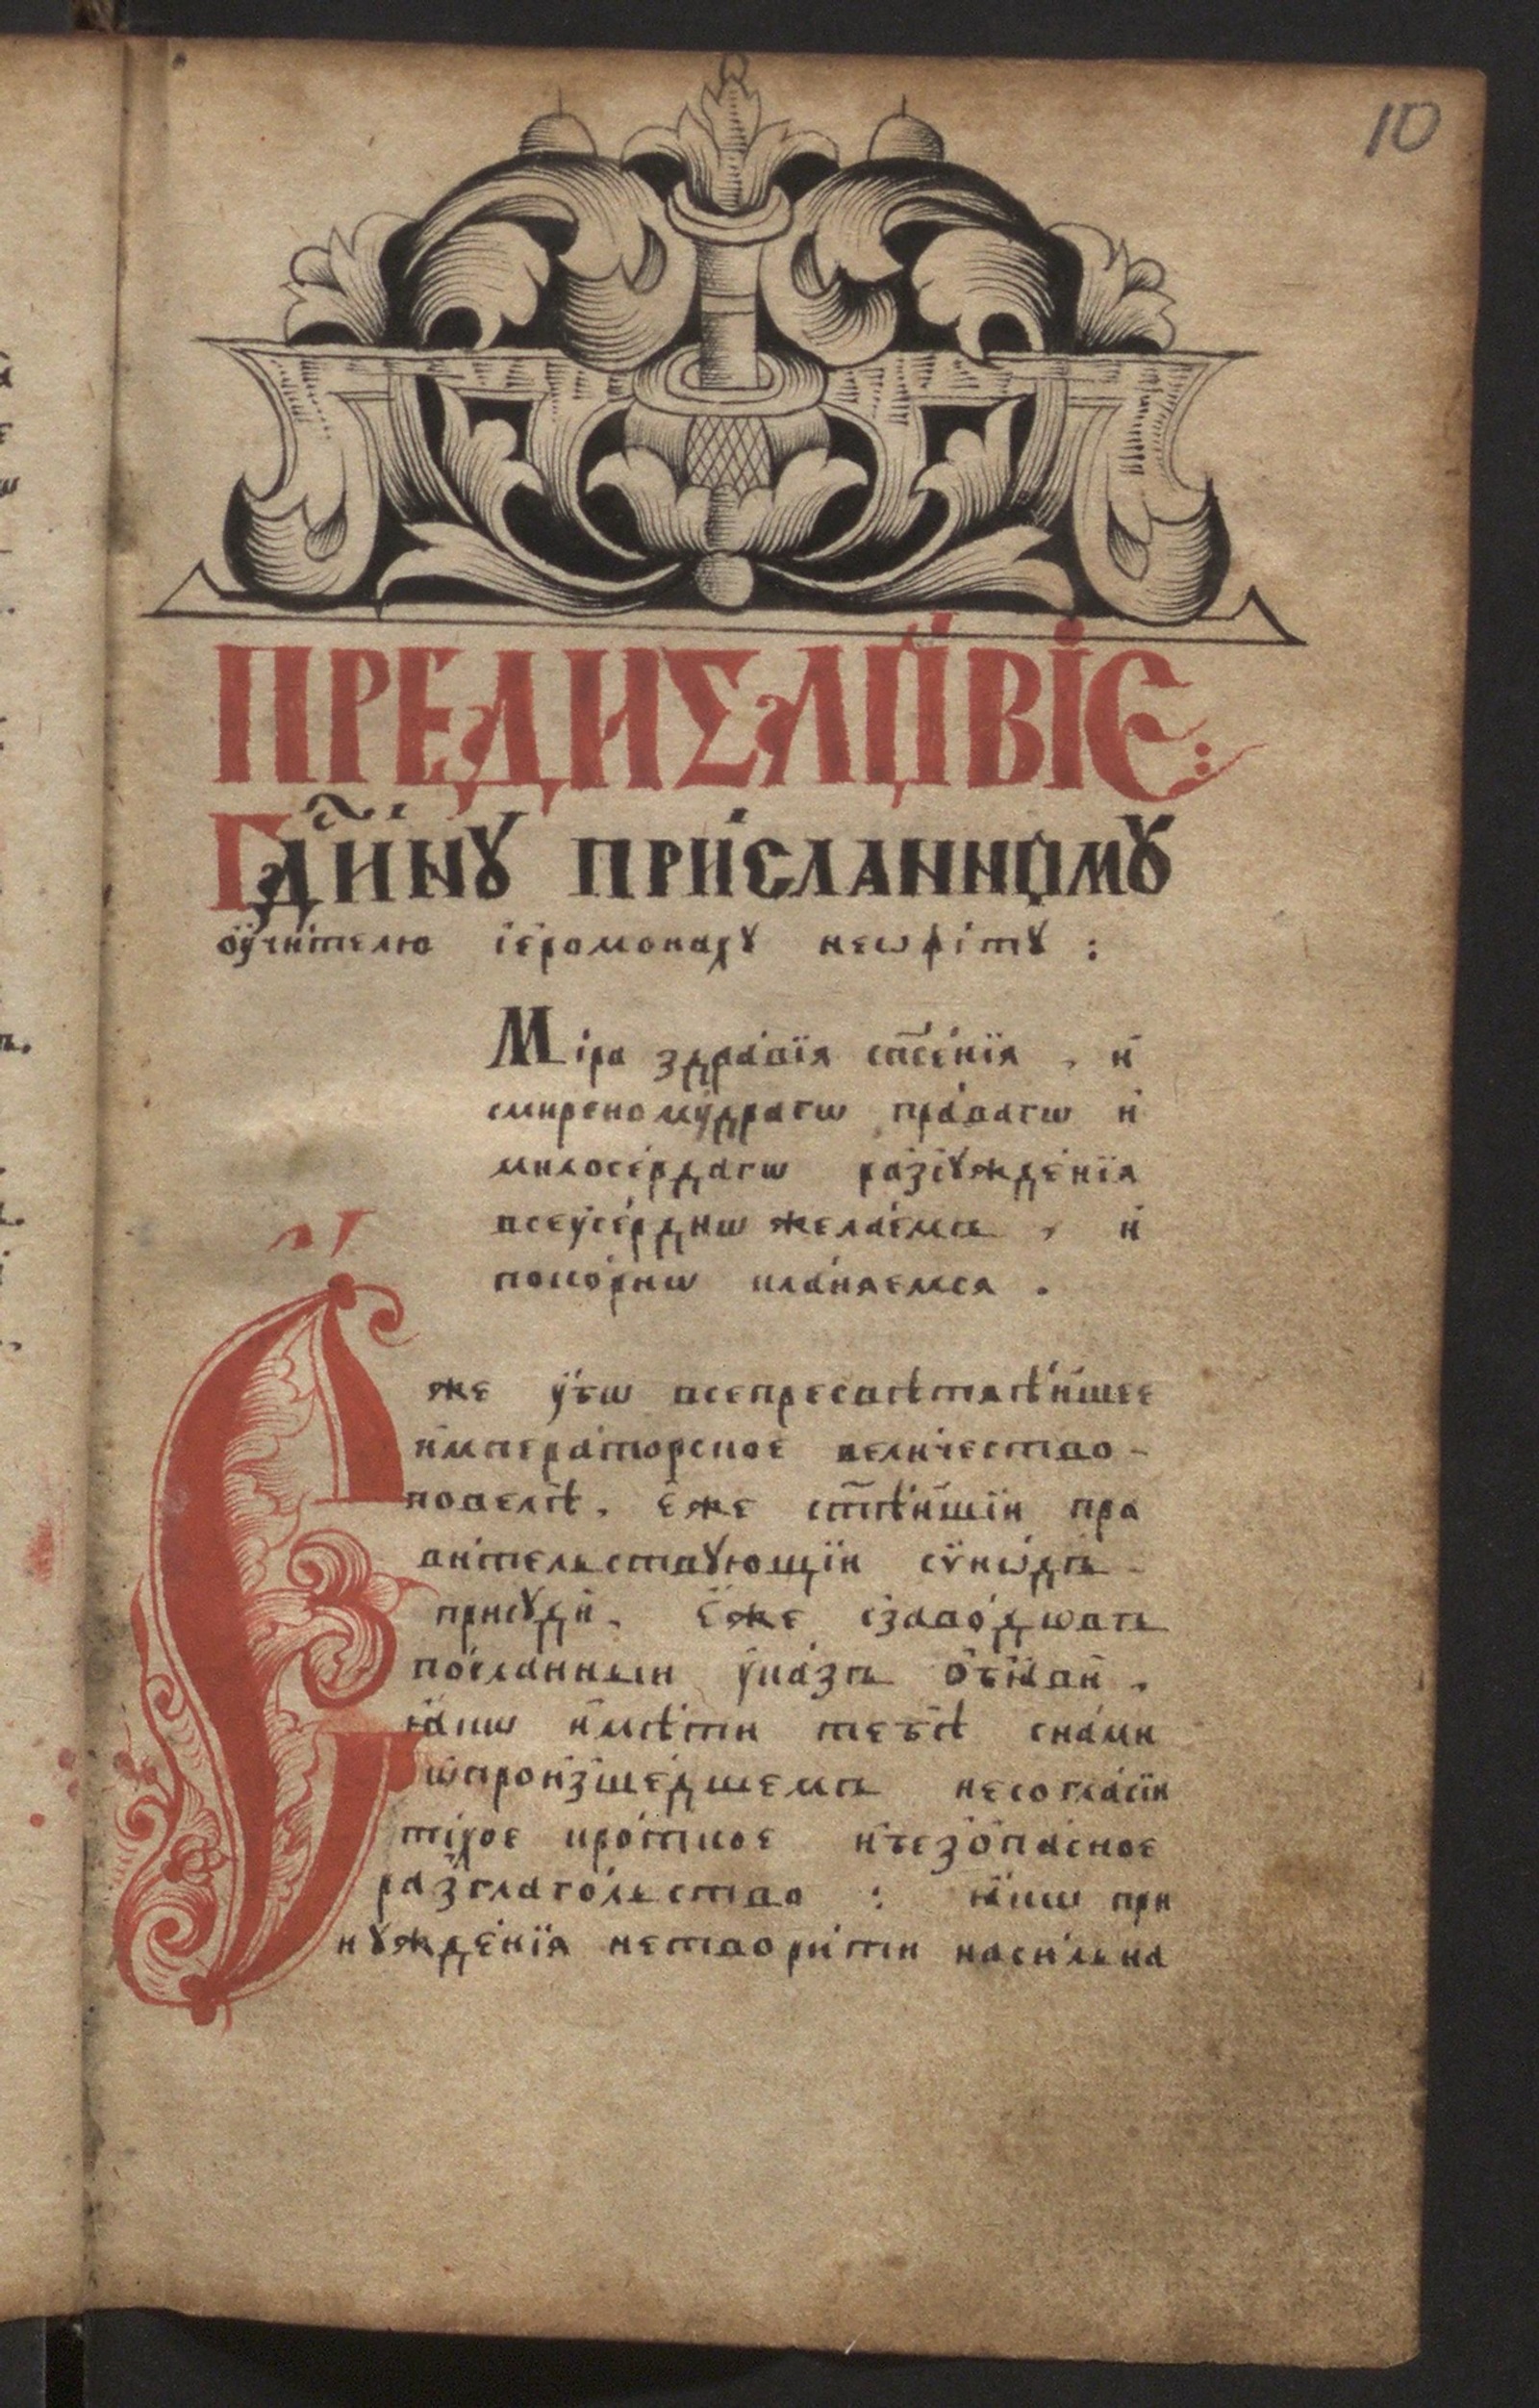 10
ПРЕДИСЛО́ВІЄ:
Гдⷭ҇и́нꙋ при́сланномꙋ
ᲂу҆чи́телю і҆еромонахꙋ неѡфі́тꙋ :
Міра здра́вїѧ сп҃се́нїѧ , и҆
смиреномꙋ́драгѡ пра́вагѡ и҆
милосе́рдагѡ разсꙋжде́нїѧ
всеꙋсе́рднѡ жела́емъ , и҆
поко́рнѡ кла́нѧемсѧ .
Є҆́же ᲂу҆́бѡ всепресвѣтлѣ́йшее
и҆мпера́торское вели́чество -
повелѣ̀. є҆́же ст҃ѣ́йшїй пра
ви́тельствꙋющїй сѷнѡ́дъ -
присꙋдѝ. Є҆́же сзаво́дѡвъ
по́сланный ᲂу҆ка́зъ ѡ҆б̾ѧвѝ .
ꙗ҆́кѡ и҆мѣ́ти тебѣ̀ сна́ми
ѡ҆происше́дшемъ несогла́сїи
ти́хое кро́ткое и҆безѻпа́сное
разглаго́льство : ꙗ҆́кѡ при
нꙋжде́нїѧ нетвори́ти наси́льна